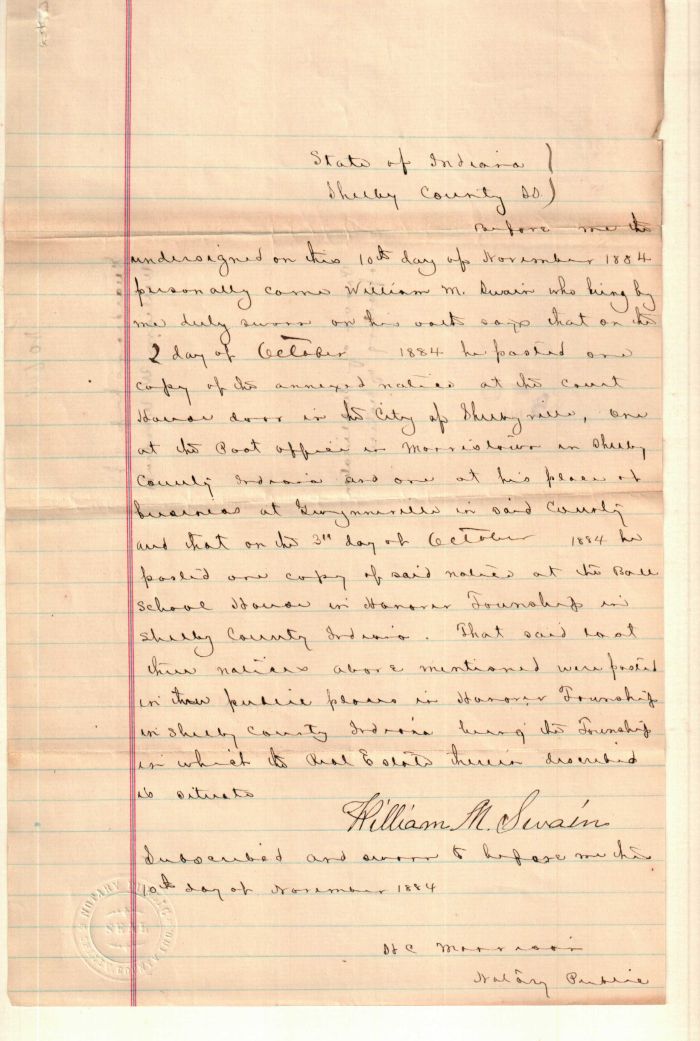 State of Indiana )
Shelby County SS )
Before me the
undersigned on this 10th day of November 1884
personally came William M. Swain who being by
me duly sworn on his oath says that on the
2 day of October 1884 he posted one
copy of the annexed notice at the Court
House door in the City of Shelbyville, one
at the Post office in Morristown in Shelby
County Indiana and one at his place of
business at Gwynneville in said County
and that on the 3rd day of October 1884 he
posted one copy of said notice at the Ball
School House in Hanover Township in
Shelby County Indiana. That said last
three notices above mentioned were posted
in three public places in Hanover Township
in Shelby County Indiana being the Township
in which the Real Estate therein described
is situate
William M. Swain
Subscribed and sworn to before me this
10th day of November 1884
H C Morrison
Notary Public
NOTARY PUBLIC
SEAL